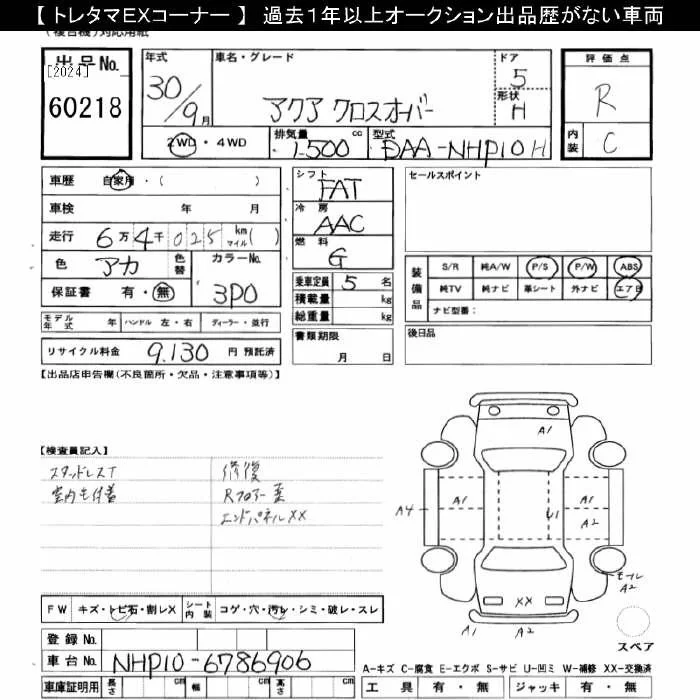 【 トレタマEXコーナー 】 過去1年以上オークション出品歴がない車両
(複合機)対応用紙
出品No.
[2024]
60218
年式
30/9月
車名・グレード
アクア クロスオーバー
ドア
5
形状
H
評価点
R
内装
C
2WD・4WD
排気量
1500 cc
型式
DAA-NHP10H
車歴 自家用・( )
車検 年 月
走行 6万4千025 km マイル( )
色 アカ
色替
カラーNo.
3P0
保証書 有・無
シフト
FAT
冷房
AAC
燃料
G
乗車定員 5 名
積載量 kg
総重量 kg
書類期限
月 日
セールスポイント
装備品
S/R 純A/W P/S P/W ABS
純TV 純ナビ 革シート 外ナビ エアB
ナビ型番:
後日品
モデル年式 年 ハンドル 左・右 ディーラー・並行
リサイクル料金 9.130 円 預託済
【出品店申告欄(不良箇所・欠品・注意事項等)】
【検査員記入】
スタッドレスT
修復
Rフロアー
エンドパネルXX
A1
A4
A1
U1
A1
A2
A2
XX
A1
A2
スペア
FW キズ・トビ石・割レX
シート内装 コゲ・穴・汚レ・シミ・破レ・スレ
登録No.
車台No. NHP10-6786906
車庫証明用 長さ cm 幅 cm 高さ cm
A-キズ C-腐食 E-エクボ S-サビ U-凹ミ W-補修 XX-交換済
工具 有・無 ジャッキ 有・無